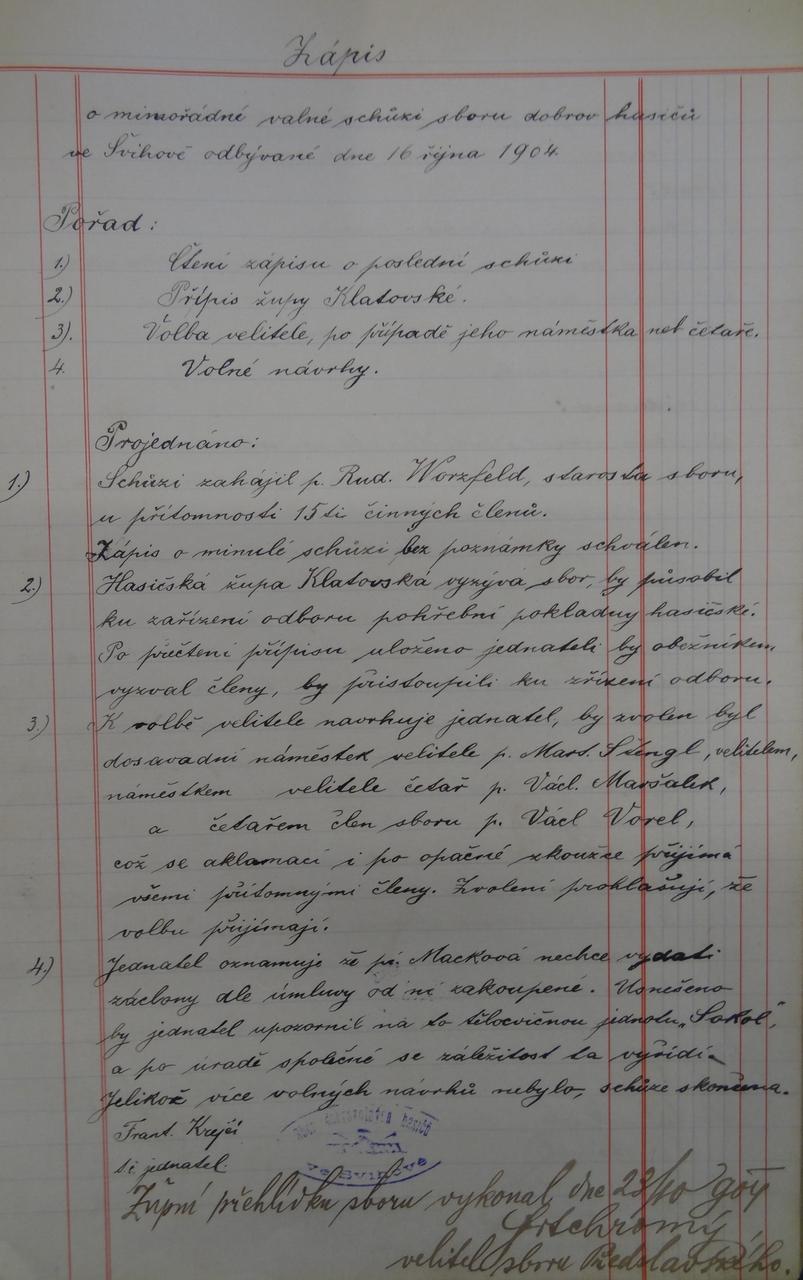 Zápis
o mimořádné valné schůzi sboru dobrov hasičů
ve Švihově odbývané dne 16 října 1904.
Pořad:
1.) Čtení zápisu o poslední schůzi
2.) Přípis župy Klatovské.
3). Volba velitele, po případě jeho náměstka neb četaře.
4. Volné návrhy.
Projednáno:
1.) Schůzi zahájil p. Rud. Worzfeld, starosta sboru,
u přítomnosti 15ti činných členů.
Zápis o minulé schůzi bez poznámky schválen.
2.) Hasičská župa Klatovská vyzývá sbor, by působil
ku zařízení odboru pohřební pokladny hasičské.
Po přečtení přípisu uloženo jednateli by oběžníkem
vyzval členy, by přistoupili ku zřízení odboru.
3.) K volbě velitele navrhuje jednatel, by zvolen byl
dosavadní náměstek velitele p. Mart. Štengl, velitelem,
náměstkem velitele četař p. Václ. Maršalek,
a četařem člen sboru p. Václ Vorel,
což se aklamací i po opačné zkoužce přijímá
všemi přítomnými členy. Zvolení prohlašují, že
volbu přijímají.
4.) Jednatel oznamuje že pí Macková nechce vydati
záclony dle úmluvy od ní zakoupené. Usnešeno
by jednatel upozornil na to tělocvičnou jednotu „Sokol“,
a po úradě společné se záležitost ta vyřídí.
Jelikož více volných návrhů nebylo, schůze skončena.
Frant. Krejčí
t. č. jednatel.
sbor dobrovolných hasičů
ve Švihově
Župní přehlídku sboru vykonal dne 23/10 904
velitel sboru Předslavského.